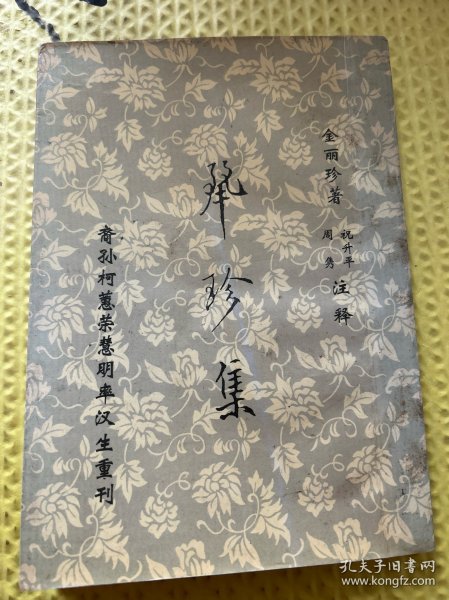 金丽珍著
祝升平
周隽
注释
珍集
裔孙柯蕙荣慧明率汉生重刊
孔夫子旧书网
www.kongfz.com